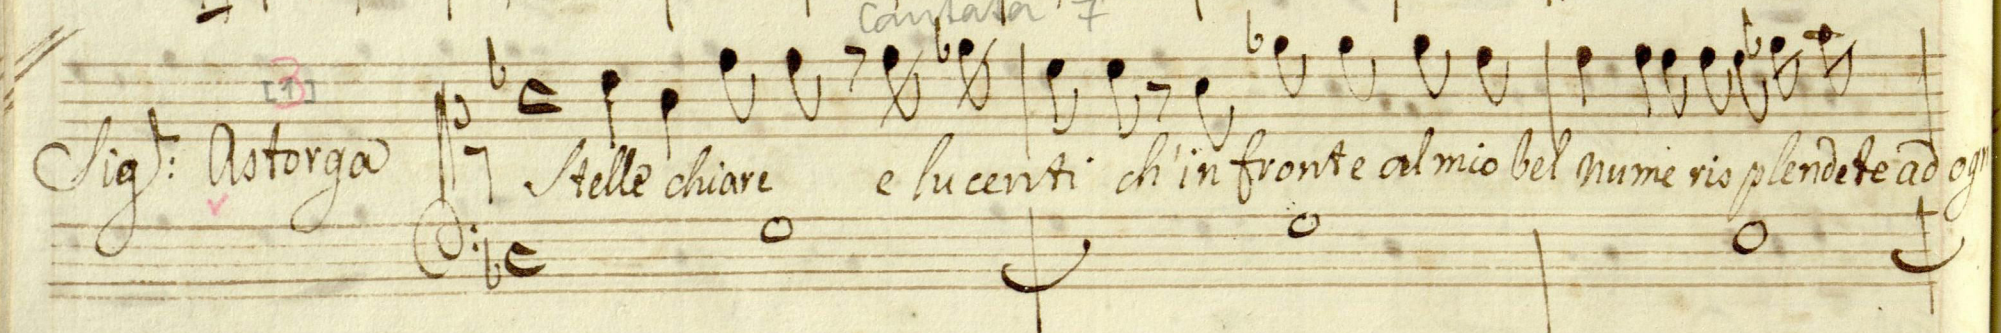 Cantata 7
[1] 3
Sig.r: Astorga
Stelle chiare e lucenti ch'in fronte al mio bel nume risplendete ad